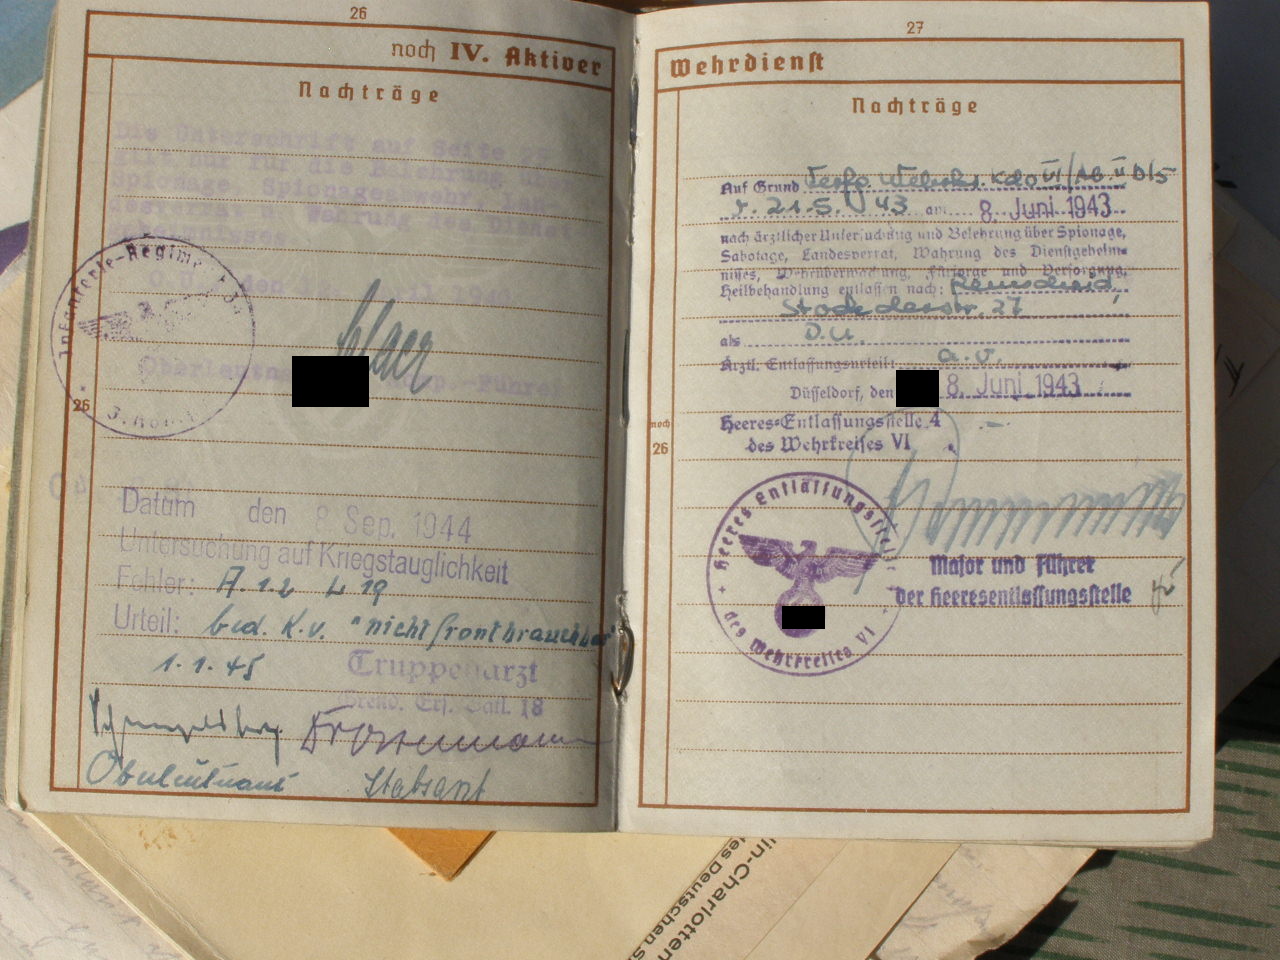 26
noch IV. Aktiver
Nachträge
Die Unterschrift auf Seite 25
gilt nur für die Belehrung über
Spionage, Spionageabwehr, Lan-
desverrat u. Wahrung des Dienst-
geheimnisses.
O.U., den 1940
Infanterie-Regiment
Oberleutnant Komp.-Führer
26
Datum den 8 Sep. 1944
Untersuchung auf Kriegstauglichkeit
Fehler: A.12 L 19
Urteil: bed. K.v. "nicht frontbrauchbar"
1.1.45 Truppenarzt
Ers. Batl. 18
Oberleutnant Stabsarzt
27
Wehrdienst
Nachträge
Auf Grund
v. 21.5.43 am 8. Juni 1943
nach ärztlicher Untersuchung und Belehrung über Spionage,
Sabotage, Landesverrat, Wahrung des Dienstgeheim-
nisses, Wehrüberwachung, Fürsorge und Versorgung,
Heilbehandlung entlassen nach: Remscheid,
27
als D.U.
Ärztl. Entlassungsurteil: a.v.
Düsseldorf, den 8. Juni 1943
Heeres-Entlassungsstelle 4
des Wehrkreises VI
noch
26
Heeres Entlassungsstelle
des Wehrkreises VI
Major und Führer
der Heeresentlassungsstelle
lin-Charlotten
des Deutschen